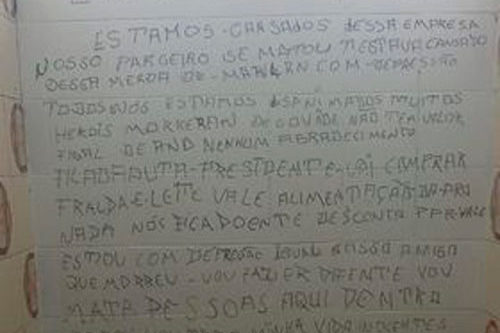 ESTAMOS CANSADOS DESSA EMPRESA
NOSSO PARCEIRO SE MATOU TESTAVA CANSADO
DESSA MERDA DE COM DEPRESSÃO
TODOS NÓS ESTAMOS DSANIMADOS MUITOS
HEROIS MORRERAN DE COVIDE NÃO TEM VALOR
FINAL DE ANO NENHUM AGRADECIMENTO
PRESIDENTE COMPRAR
FRALDA E LEITE VALE ALIMENTAÇÃO
NADA NÓS FICA DOENTE DESCONTA VALE
ESTOU COM DEPRESSÃO IGUAL NOSSO AMIGO
QUE MORREU - VOU FAZER DIFENTE VOU
MATA PESSOAS AQUI DENTRO
MINHA VIDA INOCENTES